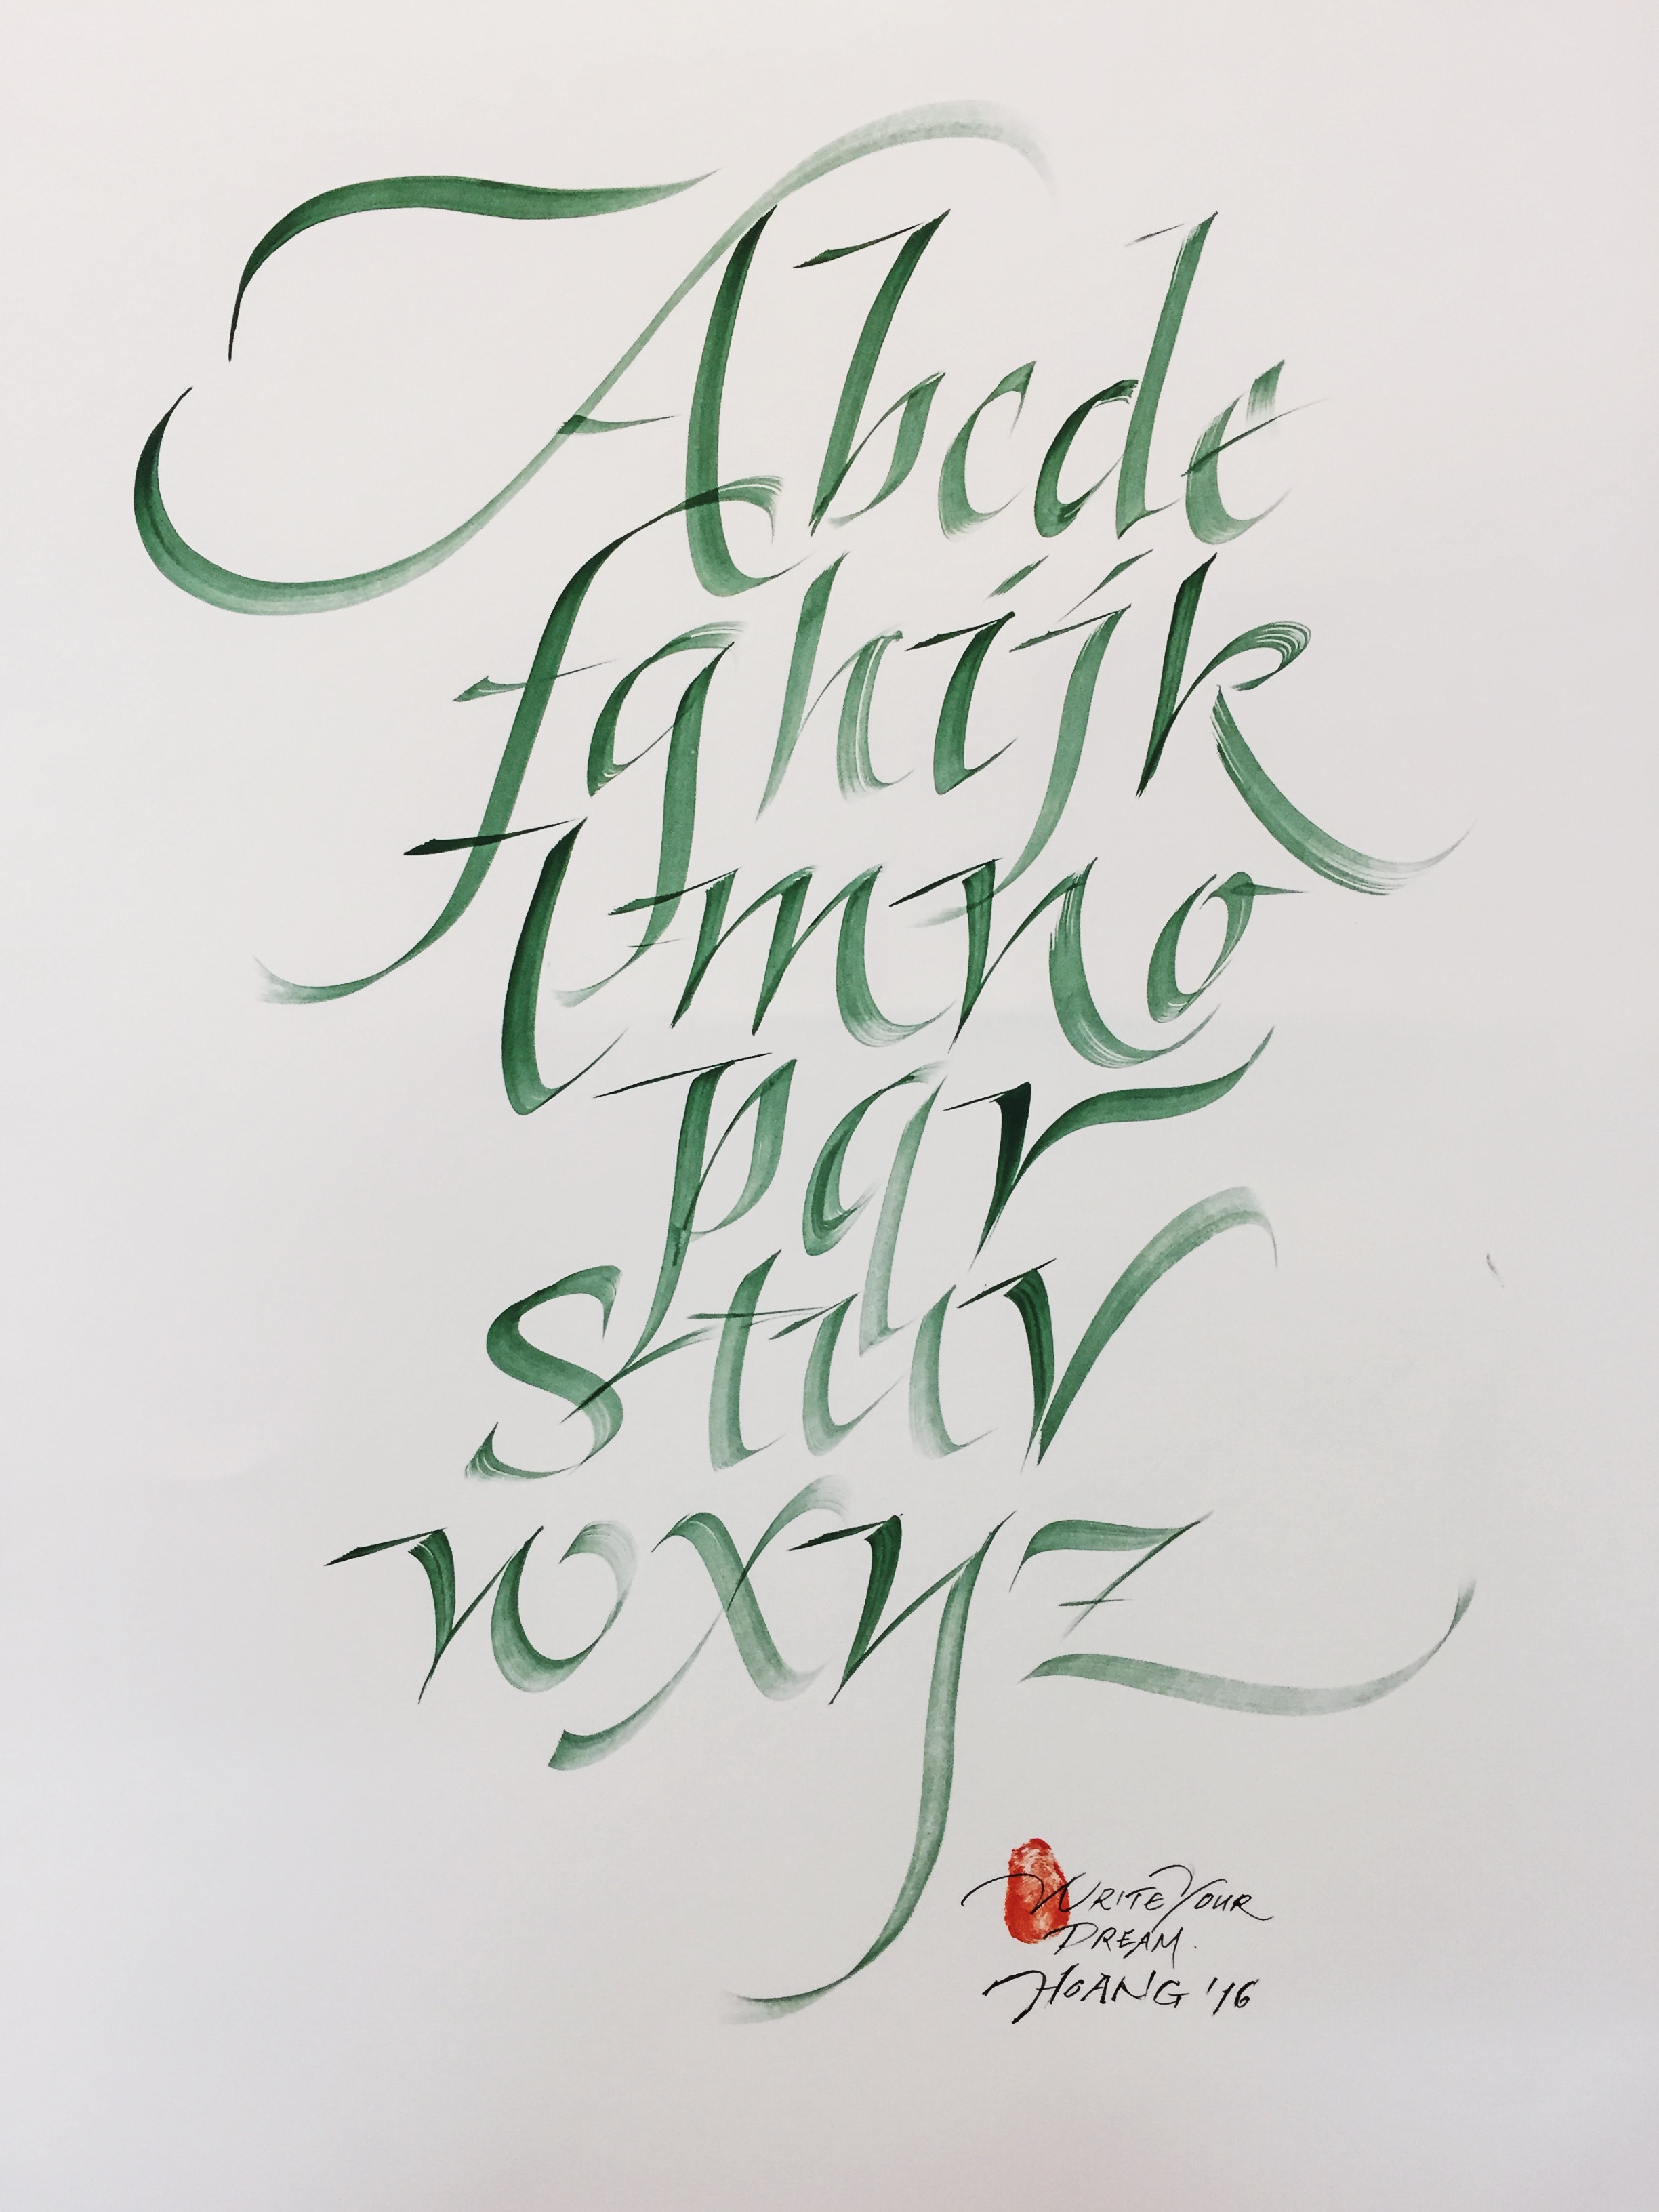 Abcde
fghijk
lmno
pqr
stuv
wxyz
WRITE YOUR
DREAM.
HOANG '16